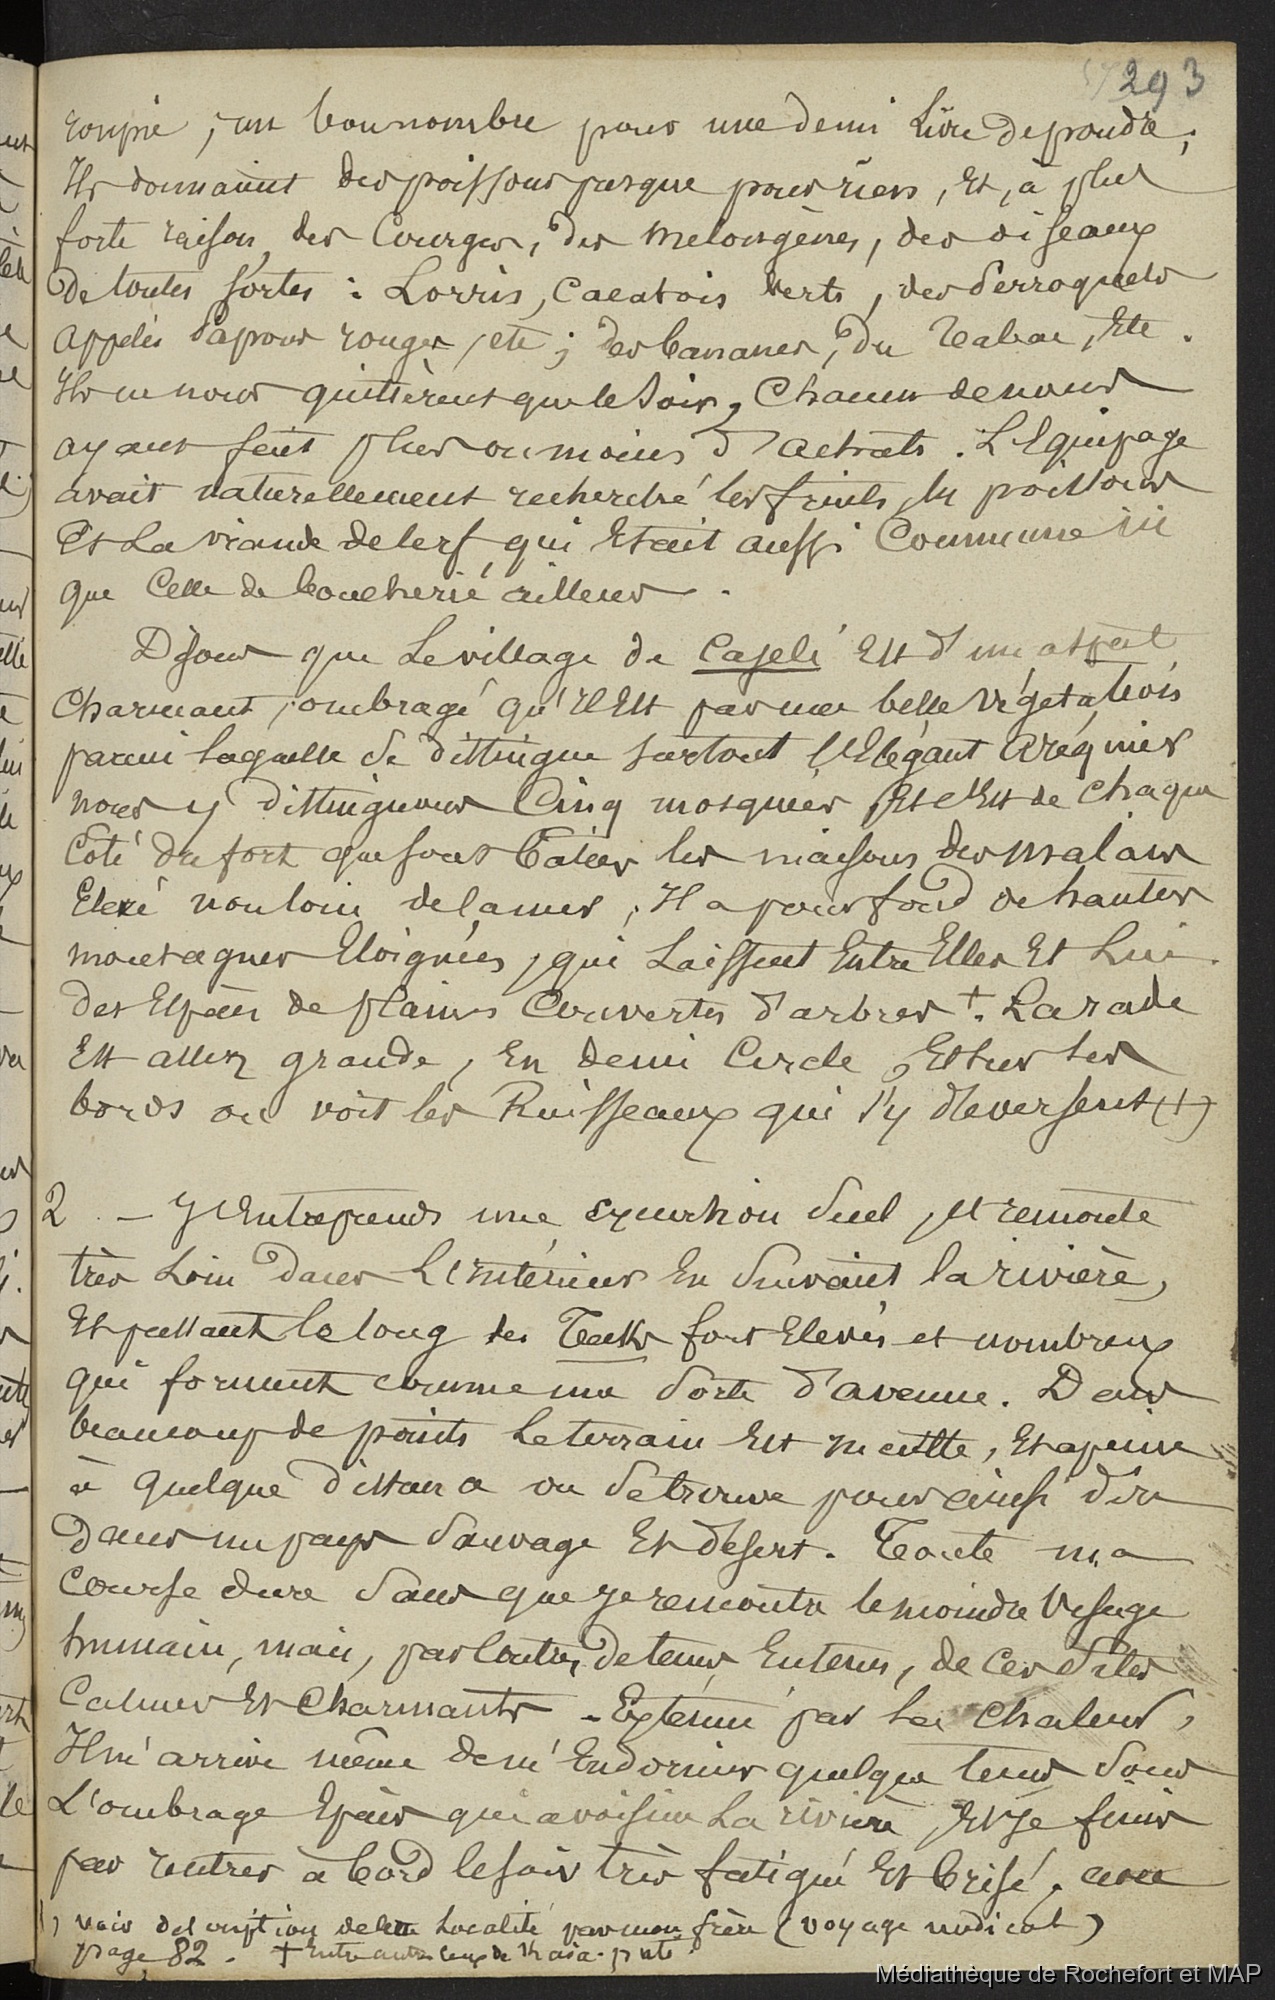 293
roupie, un bon nombre pour une demi livre de poudre,
Ils donnaient des poissons presque pour rien, Et, à plus
forte raison, des Courges, des melongènes, des oiseaux
De toutes sortes : Lorris, Cacatois verts, des Perroquets
appelés Papous rouges, etc ; des bananes, du Tabac, Etc.
Ils ne nous quittèrent que le Soir, Chacun de nous
ayant fait plus ou moins d'achats. L'Equipage
avait naturellement recherché les fruits, les poissons
Et La viande de Cerf, qui Etait aussi Commune ici
que Celle de boucherie ailleurs.
Disons que Le village de Cajeli Est d'un aspect
Charmant, ombragé qu'il Est par une belle végétation
parmi laquelle se distingue surtout l'Elégant aréquier
nous y distinguons Cinq mosquées, Et c'Est de chaque
Côté du fort que sont Bâties les maisons des malais
Elevé non loin de la mer, Il a pour fond de hautes
montagnes Eloignées, qui Laissent Entre Elles Et Lui
des Espaces de plaines Couvertes d'arbres +. La rade
Est assez grande, En demi Cercle, Et sur ses
bords on voit les Ruisseaux qui s'y déversent (1)
2 — J'Entreprends une excursion Seul, et remonte
très Loin dans L'Intérieur En Suivant la rivière,
Et passant le long des Teaks fort Elevés et nombreux
qui forment comme une Sorte d'avenue. Dans
beaucoup de points Le terrain Est inculte, Et à peine
à quelque distance on Se trouve pour ainsi dire
dans un pays Sauvage Et désert. Toute ma
Course dure Sans que je rencontre le moindre visage
humain, mais, par contre, de temps En temps, de Ces Sites
Calmes Et Charmants. Exténué par La Chaleur,
Il m'arrive même de m'Endormir quelque temps Sous
L'ombrage Epais qui avoisine La rivière, Et Je finis
par rentrer à bord le soir très fatigué Et brisé, avec
1) voir description de la Localité par mon frère (voyage médical)
page 82. + Entre autres ceux de